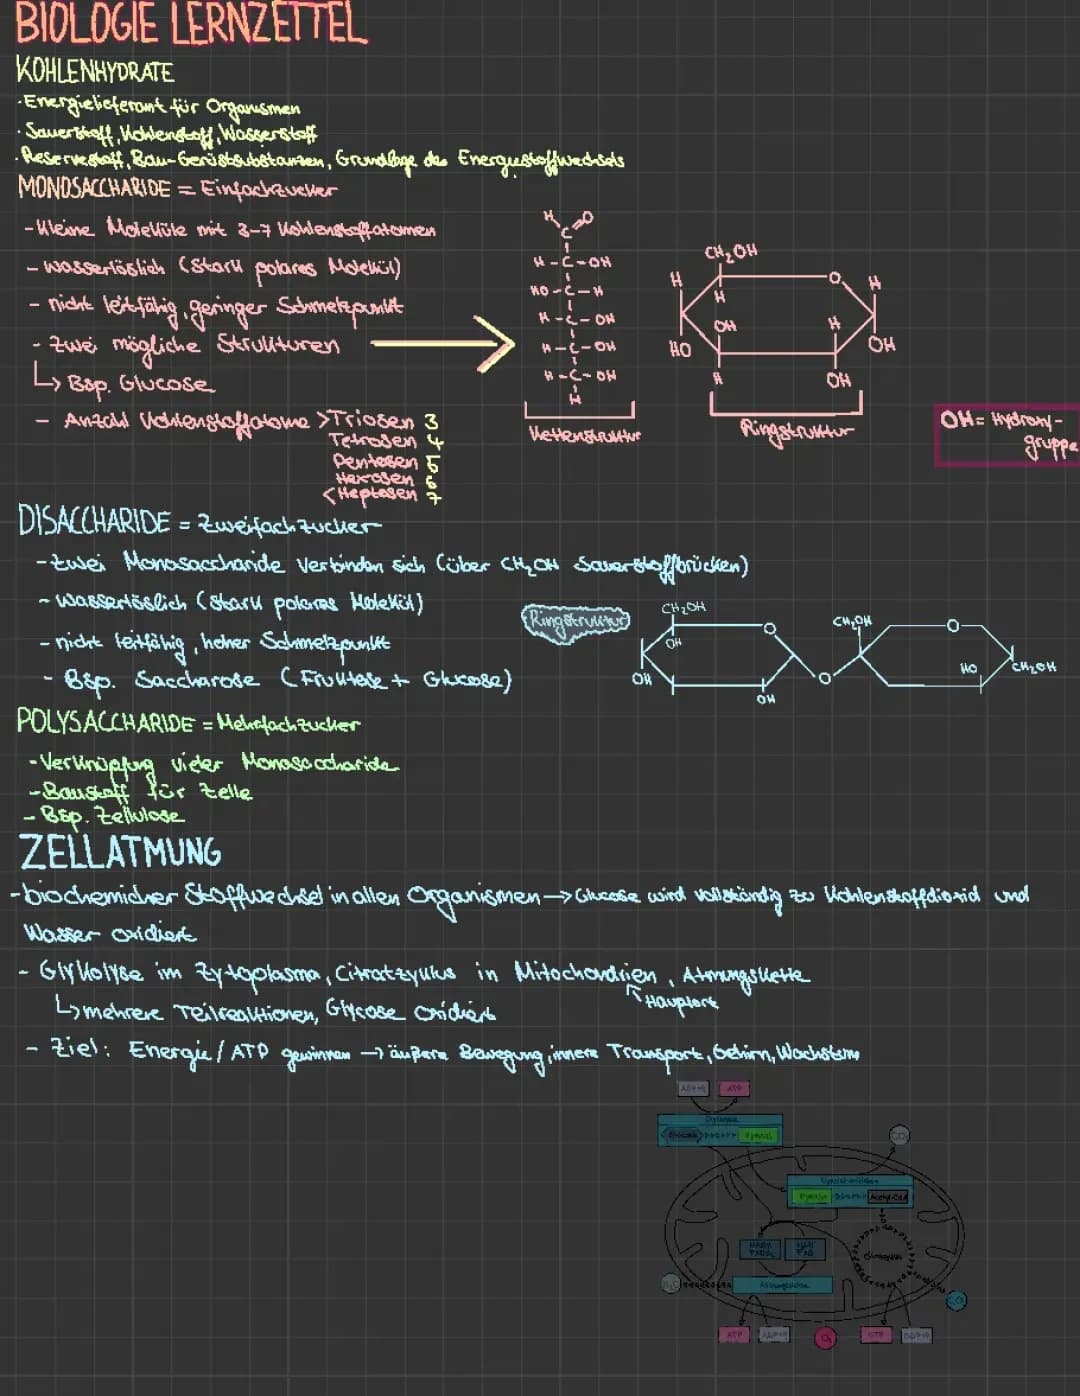 BIOLOGIE LERNZETTEL
KOHLENHYDRATE
· Energielieferant für Organismen
· Sauerstoff, Kohlenstoff, Wasserstoff
· Reservestoff, Bau-Gerüstsubstanzen, Grundlage des Energiestoffwechsels
MONOSACCHARIDE = Einfachzucker
- Kleine Moleküle mit 3-7 Kohlenstoffatomen
- wasserlöslich (stark polares Molekül)
- nicht leitfähig, geringer Schmelzpunkt
- zwei mögliche Strukturen
↳ Bsp. Glucose
- Anzahl Kohlenstoffatome > Triosen 3
Tetrosen 4
Pentosen 5
Hexosen 6
< Heptosen 7
H O
C
H-C-OH
HO-C-H
H-C-OH
H-C-OH
H-C-OH
H
Kettenstruktur
CH₂OH
H O H
H
OH H
HO OH
H OH
Ringstruktur
OH = Hydroxy-
gruppe
DISACCHARIDE = Zweifachzucker
- zwei Monosaccharide verbinden sich (über CH₂OH Sauerstoffbrücken)
- wasserlöslich (stark polares Molekül)
- nicht leitfähig, hoher Schmelzpunkt
- Bsp. Saccharose (Fruktose + Glucose)
Ringstruktur
CH₂OH CH₂OH
O O
OH HO CH₂OH
OH O
OH
POLYSACCHARIDE = Mehrfachzucker
- Verknüpfung vieler Monosaccharide
- Baustoff für Zelle
- Bsp. Zellulose
ZELLATMUNG
- biochemicher Stoffwechsel in allen Organismen → Glucose wird vollständig zu Kohlenstoffdioxid und
Wasser oxidiert
- Glykolyse im Zytoplasma, Citratzyklus in Mitochondrien, Atmungskette
↑ Hauptort
↳ mehrere Teilreaktionen, Glycose oxidiert
- Ziel: Energie / ATP gewinnen → äußere Bewegung, innere Transport, Gehirn, Wachstum
ADP+P ATP
Glucose Pyruvat
CO₂
Pyruvat Acetyl-CoA
Atmungskette
CO₂
ATP ADP+P O₂ GTP GDP+P